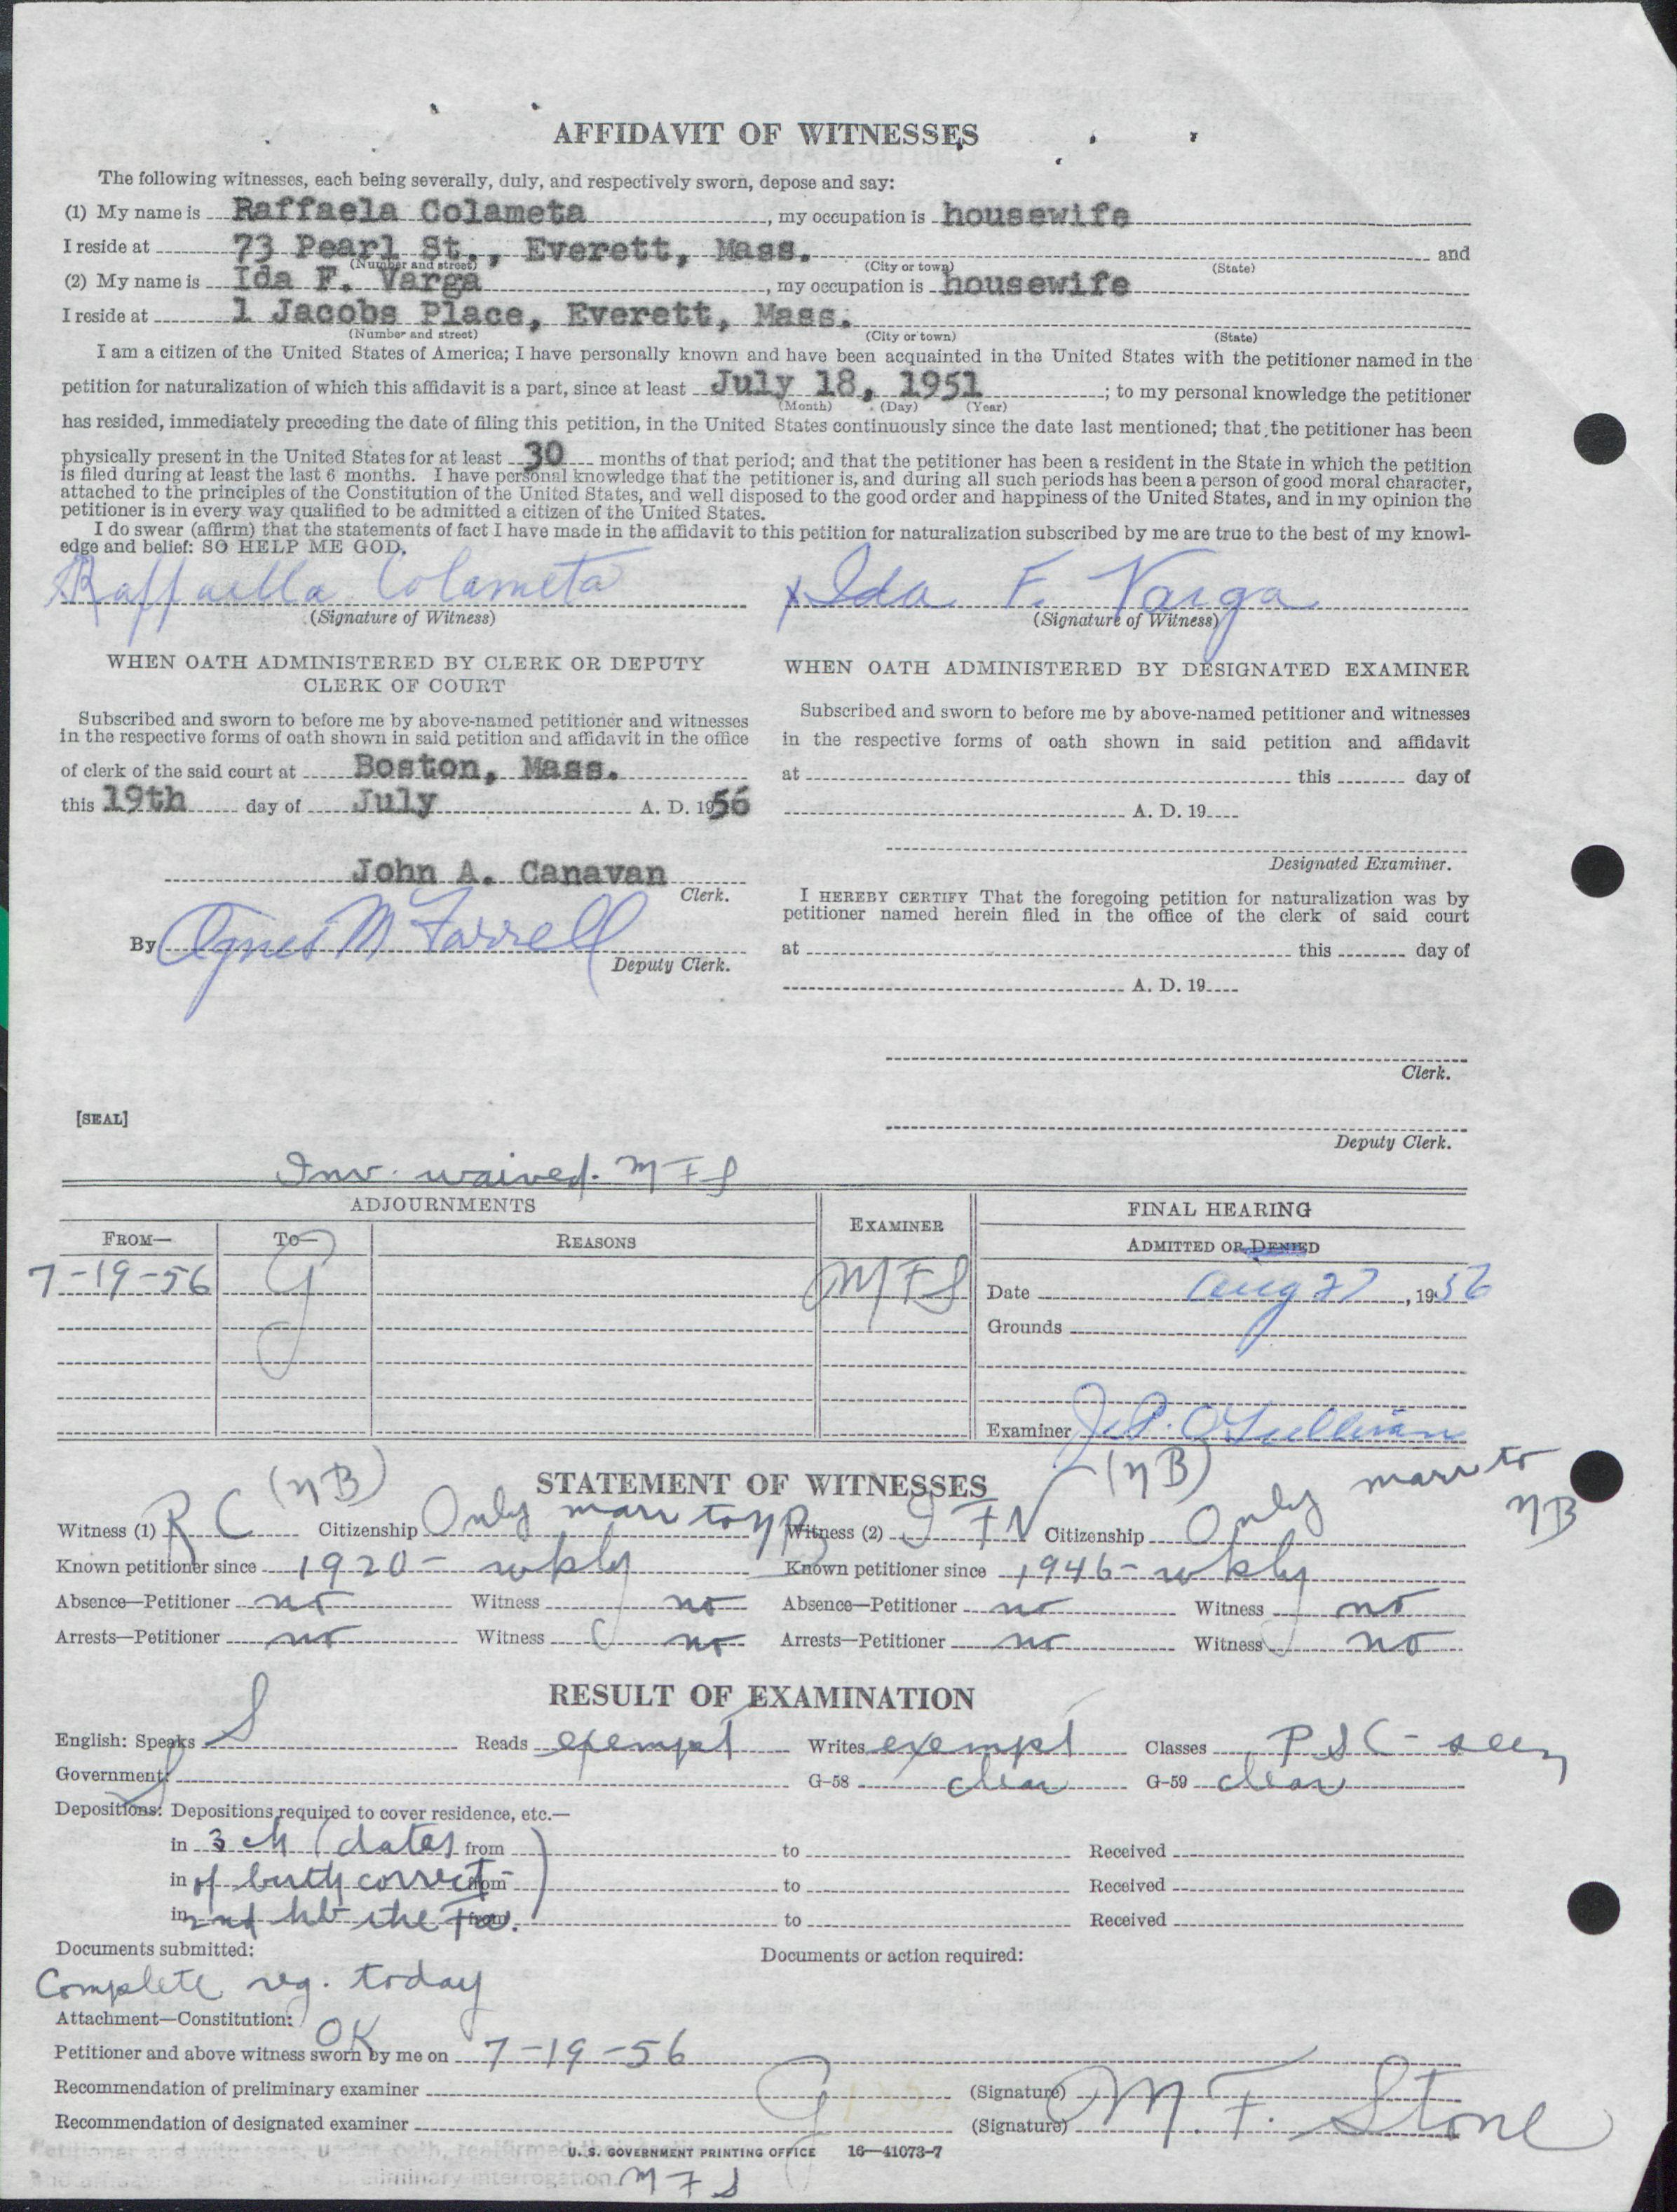 AFFIDAVIT OF WITNESSES
The following witnesses, each being severally, duly, and respectively sworn, depose and say:
(1) My name is Raffaela Colameta, my occupation is housewife
I reside at 73 Pearl St., Everett, Mass. and
(Number and street) (City or town) (State)
(2) My name is Ida F. Varga, my occupation is housewife
I reside at 1 Jacobs Place, Everett, Mass.
(Number and street) (City or town) (State)
I am a citizen of the United States of America; I have personally known and have been acquainted in the United States with the petitioner named in the
petition for naturalization of which this affidavit is a part, since at least July 18, 1951; to my personal knowledge the petitioner
(Month) (Day) (Year)
has resided, immediately preceding the date of filing this petition, in the United States continuously since the date last mentioned; that the petitioner has been
physically present in the United States for at least 30 months of that period; and that the petitioner has been a resident in the State in which the petition
is filed during at least the last 6 months. I have personal knowledge that the petitioner is, and during all such periods has been a person of good moral character,
attached to the principles of the Constitution of the United States, and well disposed to the good order and happiness of the United States, and in my opinion the
petitioner is in every way qualified to be admitted a citizen of the United States.
I do swear (affirm) that the statements of fact I have made in the affidavit to this petition for naturalization subscribed by me are true to the best of my knowl-
edge and belief: SO HELP ME GOD.
Raffaella Colameta x Ida F. Varga
(Signature of Witness) (Signature of Witness)
WHEN OATH ADMINISTERED BY CLERK OR DEPUTY
CLERK OF COURT
Subscribed and sworn to before me by above-named petitioner and witnesses
in the respective forms of oath shown in said petition and affidavit in the office
of clerk of the said court at Boston, Mass.
this 19th day of July A. D. 1956
John A. Canavan
Clerk.
By Agnes M Farrell
Deputy Clerk.
[SEAL]
WHEN OATH ADMINISTERED BY DESIGNATED EXAMINER
Subscribed and sworn to before me by above-named petitioner and witnesses
in the respective forms of oath shown in said petition and affidavit
at this day of
A. D. 19
Designated Examiner.
I HEREBY CERTIFY That the foregoing petition for naturalization was by
petitioner named herein filed in the office of the clerk of said court
at this day of
A. D. 19
Clerk.
Deputy Clerk.
Inv. waived. MFS
ADJOURNMENTS EXAMINER FINAL HEARING
FROM— TO— REASONS ADMITTED OR DENIED
7-19-56 G MFS Date Aug 27, 1956
Grounds
Examiner J. P. O'Sullivan
(NB) STATEMENT OF WITNESSES (NB) marr to
Witness (1) R C Citizenship Only marr to NB Witness (2) I F V Citizenship Only NB
Known petitioner since 1920 - wkly Known petitioner since 1946 - wkly
Absence—Petitioner no Witness no Absence—Petitioner no Witness no
Arrests—Petitioner no Witness no Arrests—Petitioner no Witness no
RESULT OF EXAMINATION
English: Speaks S Reads exempt Writes exempt Classes PSC - seen
Government: S G-58 clear G-59 clear
Depositions: Depositions required to cover residence, etc.—
in 3 ch (dates from to Received
in of birth correct from to Received
in from to Received
Documents submitted: Documents or action required:
Complete reg. today
Attachment—Constitution: OK
Petitioner and above witness sworn by me on 7-19-56
Recommendation of preliminary examiner G (Signature) M. F. Stone
Recommendation of designated examiner (Signature)
Petitioner and witnesses, under oath, reaffirmed
U. S. GOVERNMENT PRINTING OFFICE 16—41073-7
preliminary interrogation. MFS